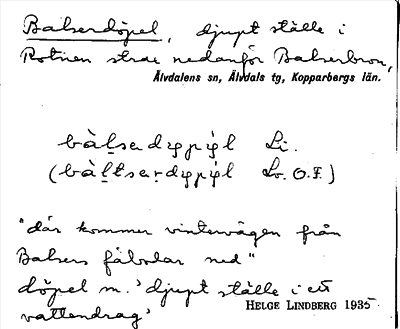 Balserdöpel, djupt ställe i
Rotnen strax nedanför Balserbron,
Älvdalens sn, Älvdals tg, Kopparbergs län.
Li.
Lr. O.F.)
"där kommer vintervägen från
Balsers fäbodar ned"
döpel m. 'djupt ställe i ett
vattendrag'
HELGE LINDBERG 1935